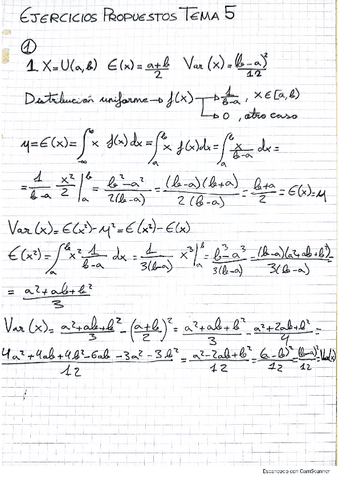 EJERCICIOS PROPUESTOS TEMA 5
①
1 X=U(a,b) E(x)=\frac{a+b}{2} Var(x)=\frac{(b-a)^2}{12}
Distribución uniforme → f(x) → \frac{1}{b-a}, x∈[a,b)
→ 0, otro caso
μ=E(x)=∫_{-∞}^{b} x f(x)dx=∫_a^b x f(x)dx=∫_a^b \frac{x}{b-a} dx=
=\frac{1}{b-a} \frac{x^2}{2} |_a^b = \frac{b^2-a^2}{2(b-a)} = \frac{(b-a)(b+a)}{2(b-a)} = \frac{b+a}{2} = E(x)=μ
Var(x)=E(x²)-μ²=E(x²)-E(x)
E(x²)=∫_a^b x² \frac{1}{b-a} dx = \frac{1}{3(b-a)} x³ |_a^b = \frac{b^3-a^3}{3(b-a)} = \frac{(b-a)(a^2+ab+b^2)}{3(b-a)}
= \frac{a^2+ab+b^2}{3}
Var(x)=\frac{a^2+ab+b^2}{3} - (\frac{a+b}{2})^2 = \frac{a^2+ab+b^2}{3} - \frac{a^2+2ab+b^2}{4} =
\frac{4a^2+4ab+4b^2-6ab-3a^2-3b^2}{12} = \frac{a^2-2ab+b^2}{12} = \frac{(a-b)^2}{12} = \frac{(b-a)^2}{12} = Var(x)
Escaneado con CamScanner